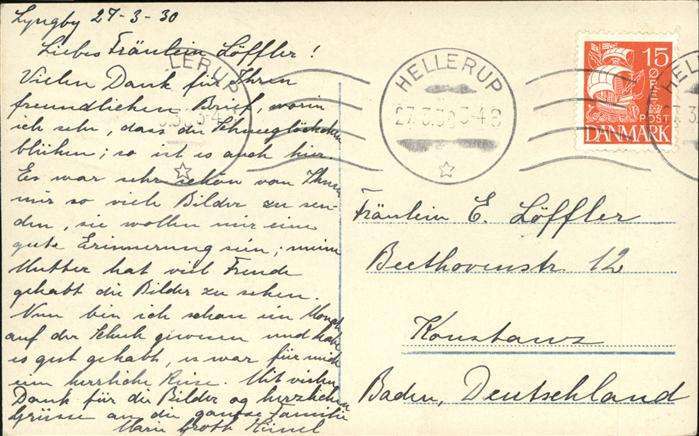 Lyngby 27-3-30
Liebes Fräulein Löffler!
Vielen Dank für Ihren
freundlichen Brief, worin
ich sehe, dass die Schneeglöckchen
blühen; so ist es auch hier.
Es war sehr schön von Ihnen
mir so viele Bilder zu sen-
den, sie wollen mir eine
gute Erinnerung sein; meine
Mutter hat viel Freude
gehabt die Bilder zu sehen.
Nun bin ich schon ein Monat
auf der Schule gewesen und habe
es gut gehabt, es war für mich
eine herrliche Reise. Mit vielen
Dank für die Bilder und herzlichen
Grüsse an die ganze Familie
Marie Groth
LERUP
HELLERUP
27.3.30 3-4 8
HELL
15
ØRE
POST
DANMARK
Fräulein E. Löffler
Beethovenstr 12
Konstanz
Baden, Deutschland